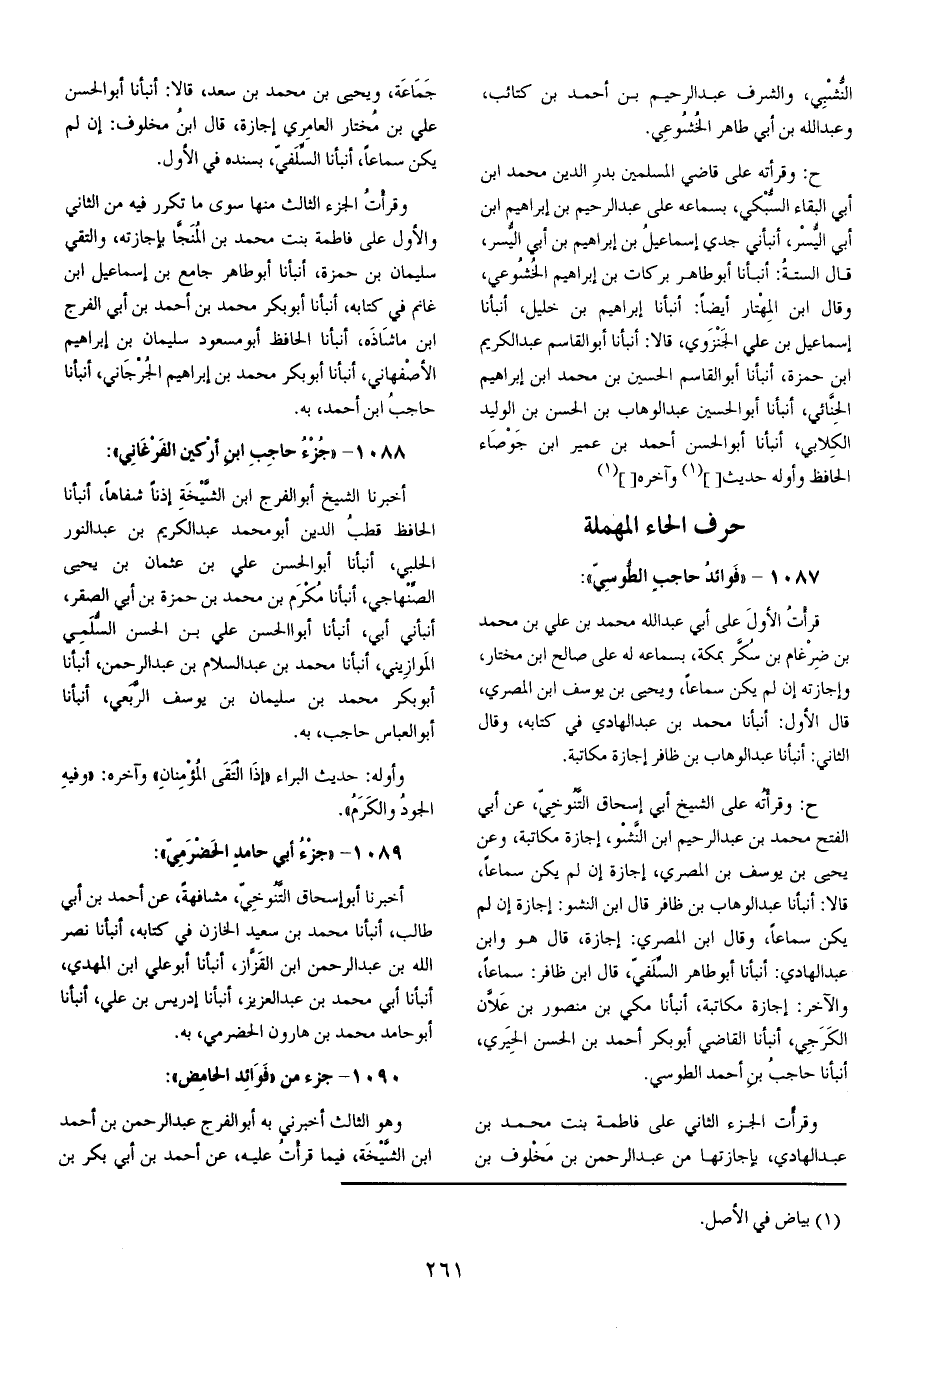 النُّشْبِي، والشرف عبدالرحيم بن أحمد بن كتائب،
وعبدالله بن أبي طاهر الخُشُوعِي.
ح: وقرأته على قاضي المسلمين بدرِ الدين محمد ابن
أبي البقاء السُّبْكي، بسماعه على عبدالرحيم بن إبراهيم ابن
أبي اليُسْر، أنبأني جدي إسماعيلُ بن إبراهيم بن أبي اليُسر،
قال الستةُ: أنبأنا أبوطاهر بركات بن إبراهيم الخُشُوعي،
وقال ابن المِهْتار أيضاً: أنبأنا إبراهيم بن خليل، أنبأنا
إسماعيل بن علي الجَنْزَوي، قالا: أنبأنا أبوالقاسم عبدالكريم
ابن حمزة، أنبأنا أبوالقاسم الحسين بن محمد ابن إبراهيم
الحِنَّائي، أنبأنا أبوالحسين عبدالوهاب بن الحسن بن الوليد
الكلابي، أنبأنا أبوالحسن أحمد بن عمير ابن جَوْصَاء
الحافظ وأوله حديث[ ](١) وآخره[ ](١)
حرف الحاء المهملة
١٠٨٧ – «فَوائدُ حاجبِ الطُّوسيّ»:
قرأتُ الأولَ على أبي عبدالله محمد بن علي بن محمد
بن ضِرْغام بن سُكَّر بمكة، بسماعه له على صالح ابن مختار،
وإجازته إن لم يكن سماعاً، ويحيى بن يوسف ابن المصري،
قال الأول: أنبأنا محمد بن عبدالهادي في كتابه، وقال
الثاني: أنبأنا عبدالوهاب بن ظافر إجازة مكاتبة.
ح: وقرأتُه على الشيخ أبي إسحاق التَّنُوخيّ، عن أبي
الفتح محمد بن عبدالرحيم ابن النَّشْو، إجازة مكاتبة، وعن
يحيى بن يوسف بن المصري، إجازة إن لم يكن سماعاً،
قالا: أنبأنا عبدالوهاب بن ظافر قال ابن النشو: إجازة إن لم
يكن سماعاً، وقال ابن المصري: إجازة، قال هو وابن
عبدالهادي: أنبأنا أبوطاهر السِّلَفيّ، قال ابن ظافر: سماعاً،
والآخر: إجازة مكاتبة، أنبأنا مكي بن منصور بن عَلاَّن
الكَرَجي، أنبأنا القاضي أبوبكر أحمد بن الحسن الحِيَري،
أنبأنا حاجبُ بنِ أحمد الطوسي.
وقرأت الجزء الثاني على فاطمة بنت محمد بن
عبدالهادي، بإجازتها من عبدالرحمن بن مَخْلوف بن
جَمَاعَة، ويحيى بن محمد بن سعد، قالا: أنبأنا أبوالحسن
علي بن مُختار العامِري إجازة، قال ابنُ مخلوف: إن لم
يكن سماعاً، أنبأنا السِّلَفيّ، بسنده في الأول.
وقرأْتُ الجزء الثالث منها سوى ما تكرر فيه من الثاني
والأول على فاطمة بنت محمد بن المُنَجَّا بإجازته، والتقي
سليمان بن حمزة، أنبأنا أبوطاهر جامع بن إسماعيل ابن
غانم في كتابه، أنبأنا أبوبكر محمد بن أحمد بن أبي الفرج
ابن ماشَاذَه، أنبأنا الحافظ أبومسعود سليمان بن إبراهيم
الأصْفهاني، أنبأنا أبوبكر محمد بن إبراهيم الجُرْجَاني، أنبأنا
حاجبُ ابن أحمد، به.
١٠٨٨– «جُزْءُ حاجِبِ ابنِ أرْكين الفَرْغَاني»:
أخبرنا الشيخ أبوالفرج ابن الشَّيْخَةِ إذناً شفاهاً، أنبأنا
الحافظ قطبُ الدين أبومحمد عبدالكريم بن عبدالنور
الحلبي، أنبأنا أبوالحَسن علي بن عثمان بن يحيى
الصِّنْهاجي، أنبأنا مُكْرَم بن محمد بن حمزة بن أبي الصقر،
أنبأني أبي، أنبأنا أبواالحسن علي بن الحسن السُّلَمي
الموازِيني، أنبأنا محمد بن عبدالسلام بن عبدالرحمن، أنبأنا
أبوبكر محمد بن سليمان بن يوسف الرَّبَعي، أنبأنا
أبوالعباس حاجب، به.
وأوله: حديث البراء «إذَا الْتَقَى المُؤْمِنانِ» وآخره: «وفيهِ
الجودُ والكَرَمُ».
١٠٨٩– «جزْءُ أبي حامدٍ الحَضْرَميّ»:
أخبرنا أبوإسحاق التَّنُوخيّ، مشافهةً، عن أحمد بن أبي
طالب، أنبأنا محمد بن سعيد الخازن في كتابه، أنبأنا نصر
الله بن عبدالرحمن ابن القَزَّاز، أنبأنا أبوعلي ابن المهدي،
أنبأنا أبي محمد بن عبدالعزيز، أنبأنا إدريس بن علي، أنبأنا
أبوحامد محمد بن هارون الحضرمي، به.
١٠٩٠– جزء من «فَوَائد الحامِض»:
وهو الثالث أخبرني به أبوالفرج عبدالرحمن بن أحمد
ابن الشَّيْخَة، فيما قرأتُ عليه، عن أحمد بن أبي بكر بن
(١) بياض في الأصل.
٢٦١